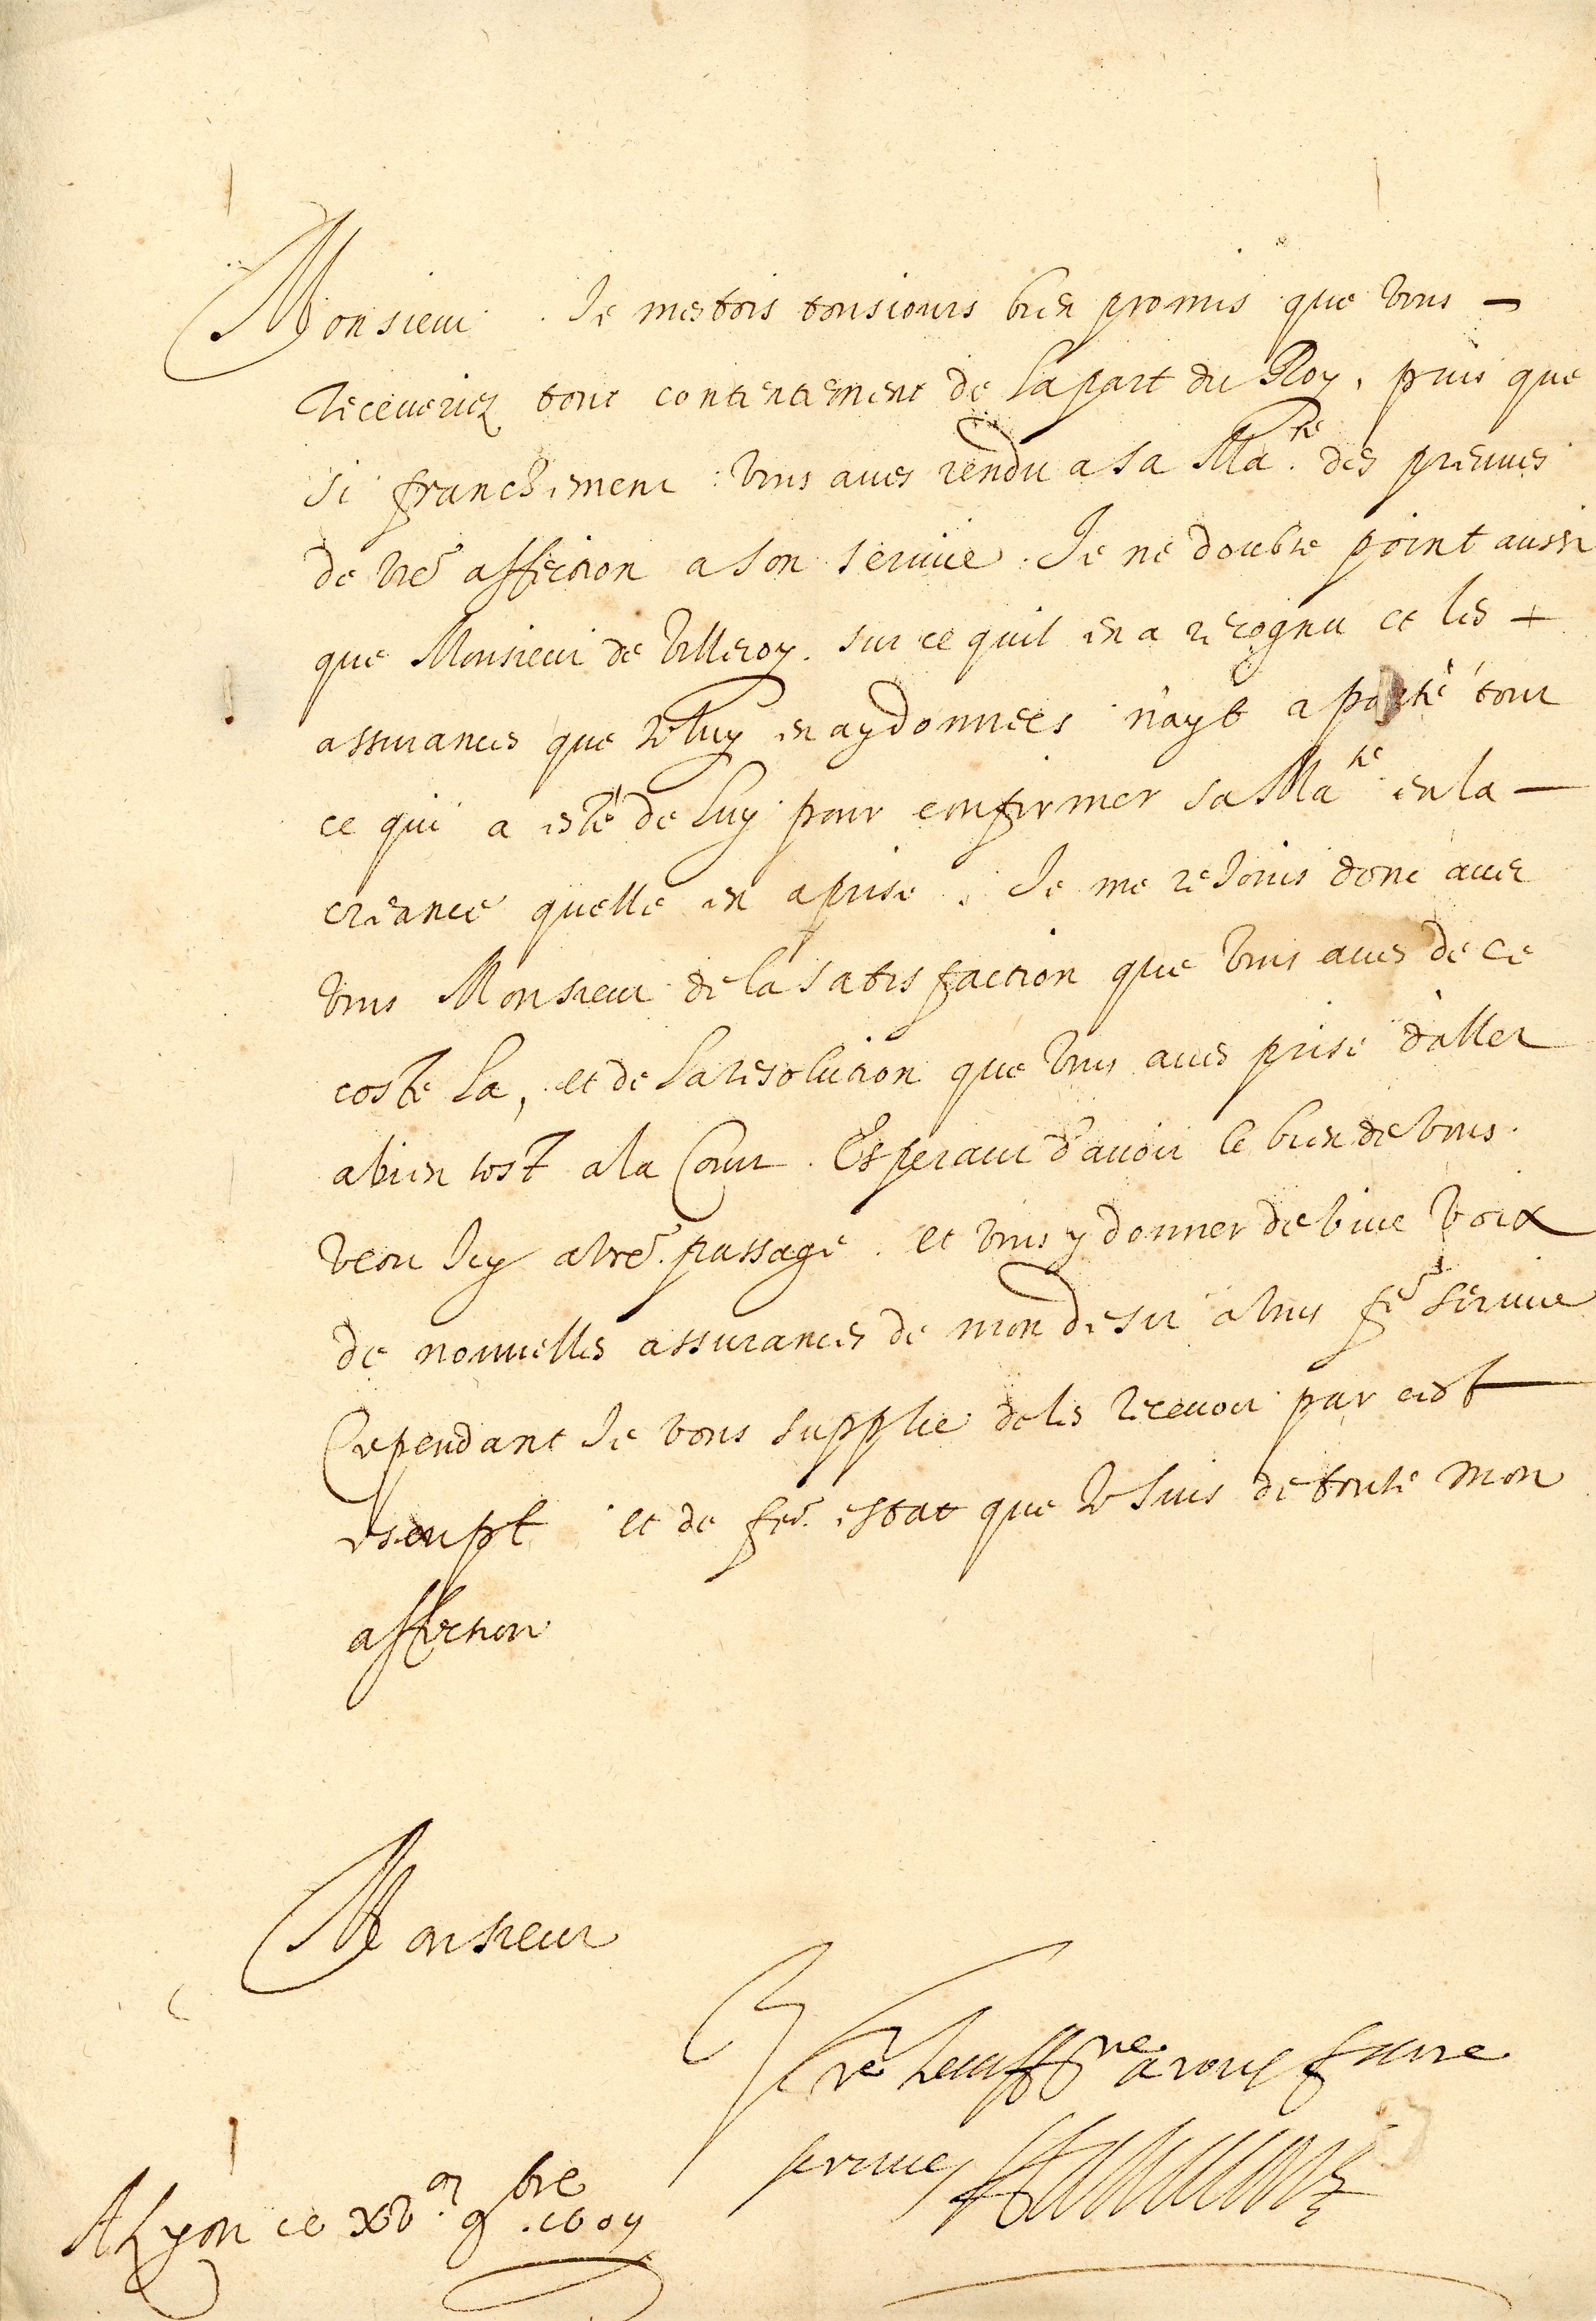 Monsieur. Je mestois tousiours bien promis que vous
receueriez tout contentement de la part du Roy, puis que
si franchement vous aues rendu a sa Ma.te des preuues
de vre affection a son seruice. Je ne doubte point aussi
que Monsieur de Villeroy. sur ce quil en a recognu et les
assurances que Je luy en ay donnees n'ayt aporté tout
ce qui a esté de luy pour confirmer sa Ma.te en la
creance quelle en a prise. Je me rejouis donc auec
vous Monsieur de la satisfaction que vous aues de ce
costé la, et de la resolution que vous aues prise d'aller
a bien tost a la Cour. Esperant d'auoir le bien de vous
veoir Icy a vre. passage. et vous y donner de viue voix
de nouuelles assurances de mon desir a vous fe seruice
Cependant Je vous supplie de les receuoir par cest
escript et de fe. estat que Je suis de toute mon
affection
Monsieur
Vre a vous faire
seruice
A Lyon ce xv.e 9.bre 1609